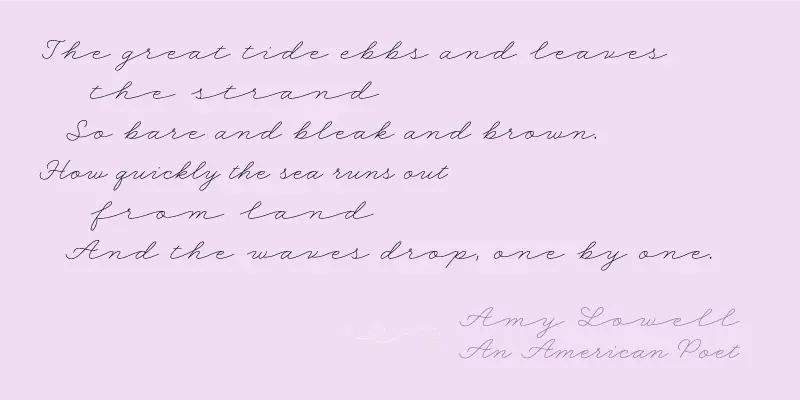 The great tide ebbs and leaves
the strand
So bare and bleak and brown.
How quickly the sea runs out
from land
And the waves drop, one by one.
Amy Lowell
An American Poet